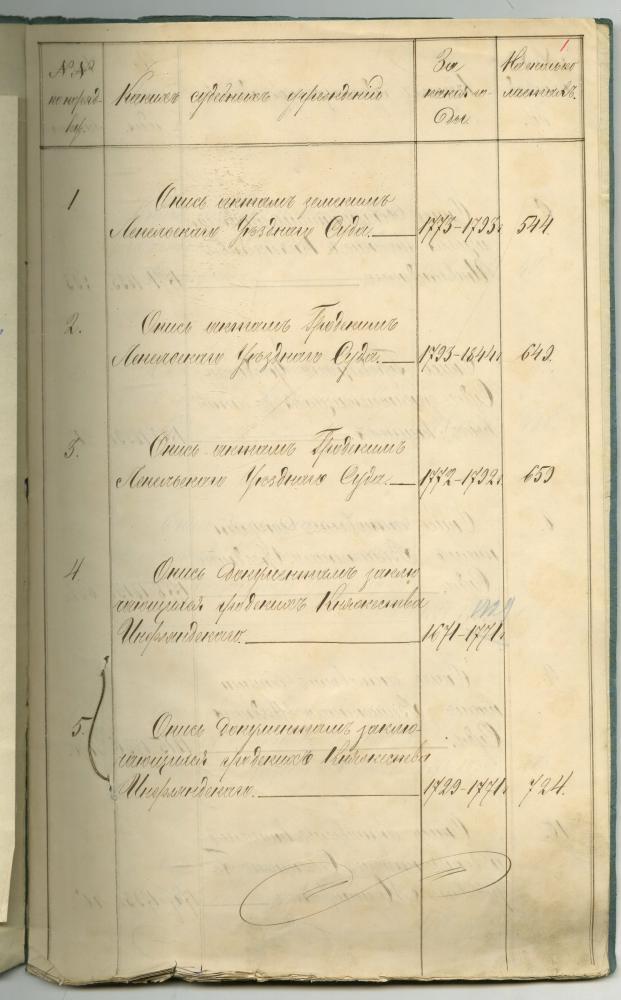 1
№№
по поряд-
ку.
Какихъ судебныхъ учрежденій
За
какіе го-
ды.
На сколько
листахъ.
1
Опись актамъ земскимъ
Лепельскаго Уѣзднаго Суда.
1773-1793г.
544.
2.
Опись актамъ Гродскимъ
Лепельскаго Уѣзднаго Суда.
1793-1844г.
649.
3.
Опись актамъ Гродскимъ
Лепельскаго Уѣзднаго Суда.
1772-1792г.
659
4.
Опись документамъ заклю
чающимся гродскихъ Княжества
Инфляндскаго.
1671-1771г.
5.
Опись документамъ заклю-
чающимся гродскихъ Княжества
Инфляндскаго.
1729-1771г.
724.